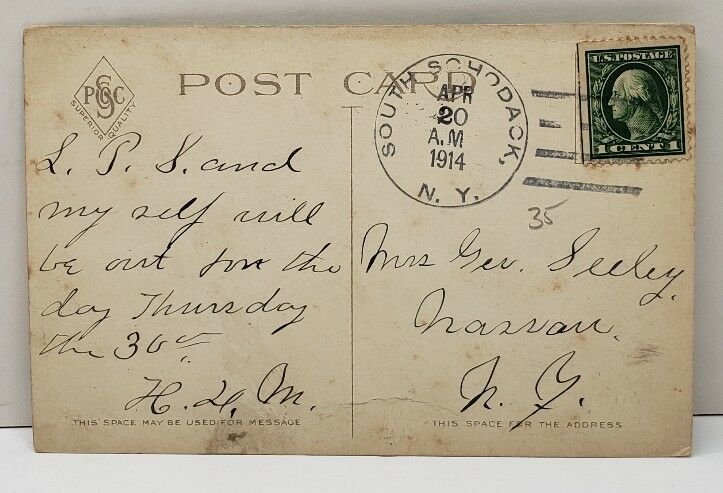 PSC
SUPERIOR QUALITY
POST CARD
SOUTH SCHODACK,
APR
20
A.M
1914
N.Y.
U.S. POSTAGE
1 CENT 1
35
L. P. S. and
my self will
be out for the
day Thursday
the 30
H. H. M.
Mrs Geo. Seeley.
Nassau.
N. Y.
THIS SPACE MAY BE USED FOR MESSAGE
THIS SPACE FOR THE ADDRESS